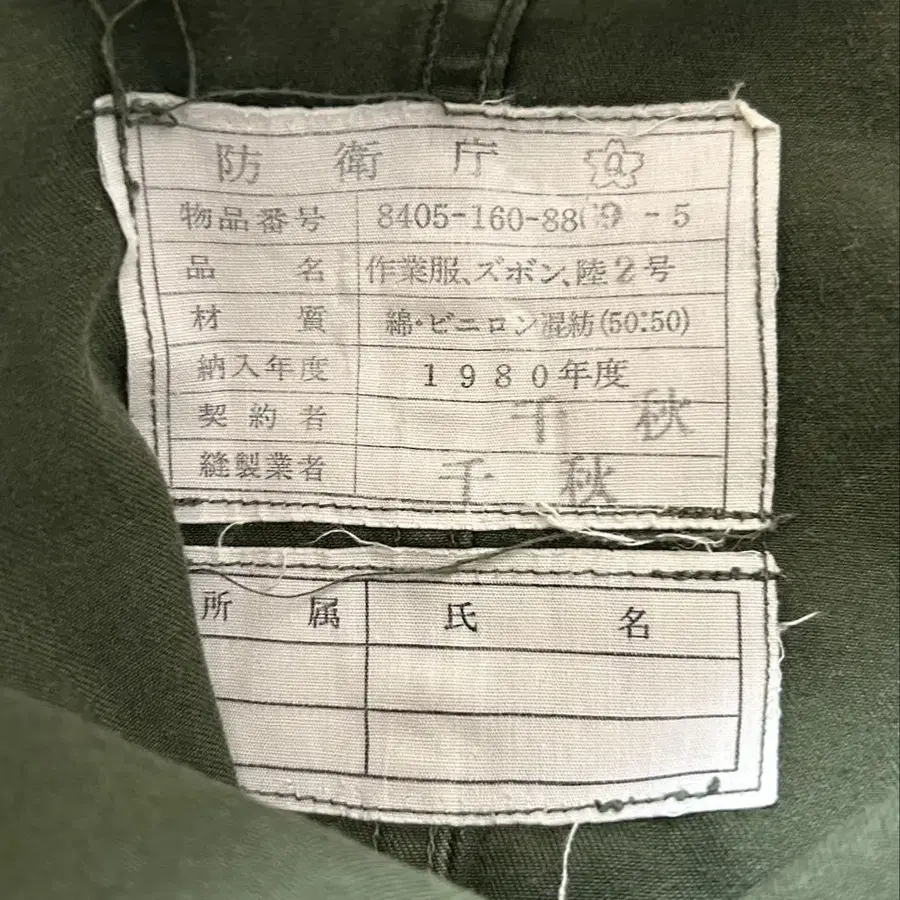 防衛庁 Q
物品番号 8405-160-88 9-5
品名 作業服、ズボン、陸2号
材質 綿・ビニロン混紡(50:50)
納入年度 1980年度
契約者 千秋
縫製業者 千秋
所属 氏名